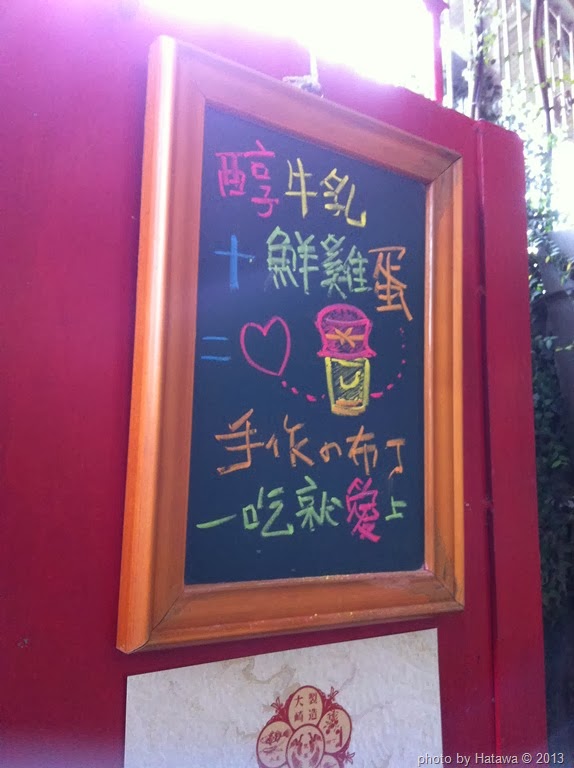 醇牛乳
+鮮雞蛋
=
手作の布丁
一吃就愛上
大崎
製造
photo by Hatawa © 2013